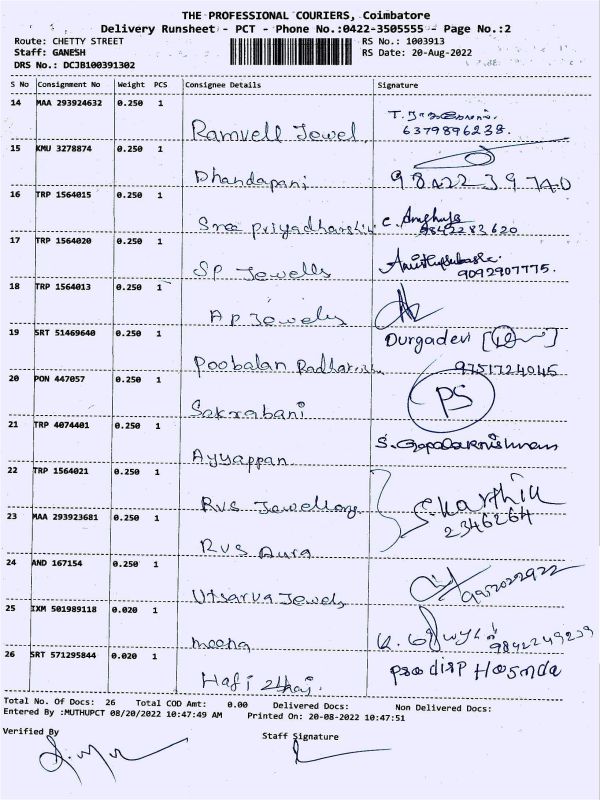 THE PROFESSIONAL COURIERS, Coimbatore
Delivery Runsheet - PCT - Phone No.:0422-3505555 - Page No.:2
Route: CHETTY STREET RS No.: 1003913
Staff: GANESH RS Date: 20-Aug-2022
DRS No.: DCJB100391302
S No Consignment No Weight PCS Consignee Details Signature
14 MAA 293924632 0.250 1
Ramvell Jewel 6379896238.
15 KMU 3278874 0.250 1
Dhandapani 9842239740
16 TRP 1564015 0.250 1
Sree Priyadharshin 9842283620
17 TRP 1564020 0.250 1
SP Jewells 9092907775.
18 TRP 1564013 0.250 1
AP Jewels
19 SRT 51469640 0.250 1 Durgadevi
Poobalan Radhakrishn 9751724045
20 PON 447057 0.250 1 PS
Sakrabani
21 TRP 4074401 0.250 1 S. Gopalakrishnan
Ayyappan
22 TRP 1564021 0.250 1
RVS Jewellery S. Karthik
23 MAA 293923681 0.250 1 2346264
RVS Aura
24 AND 167154 0.250 1 9952022922
Utsarva Jewels
25 IXM 501989118 0.020 1
meena 9842249239
26 SRT 571295844 0.020 1
Total No. Of Docs: 26 Total COD Amt: 0.00 Delivered Docs: Non Delivered Docs:
Entered By :MUTHUPCT 08/20/2022 10:47:49 AM Printed On: 20-08-2022 10:47:51
Verified By Staff Signature